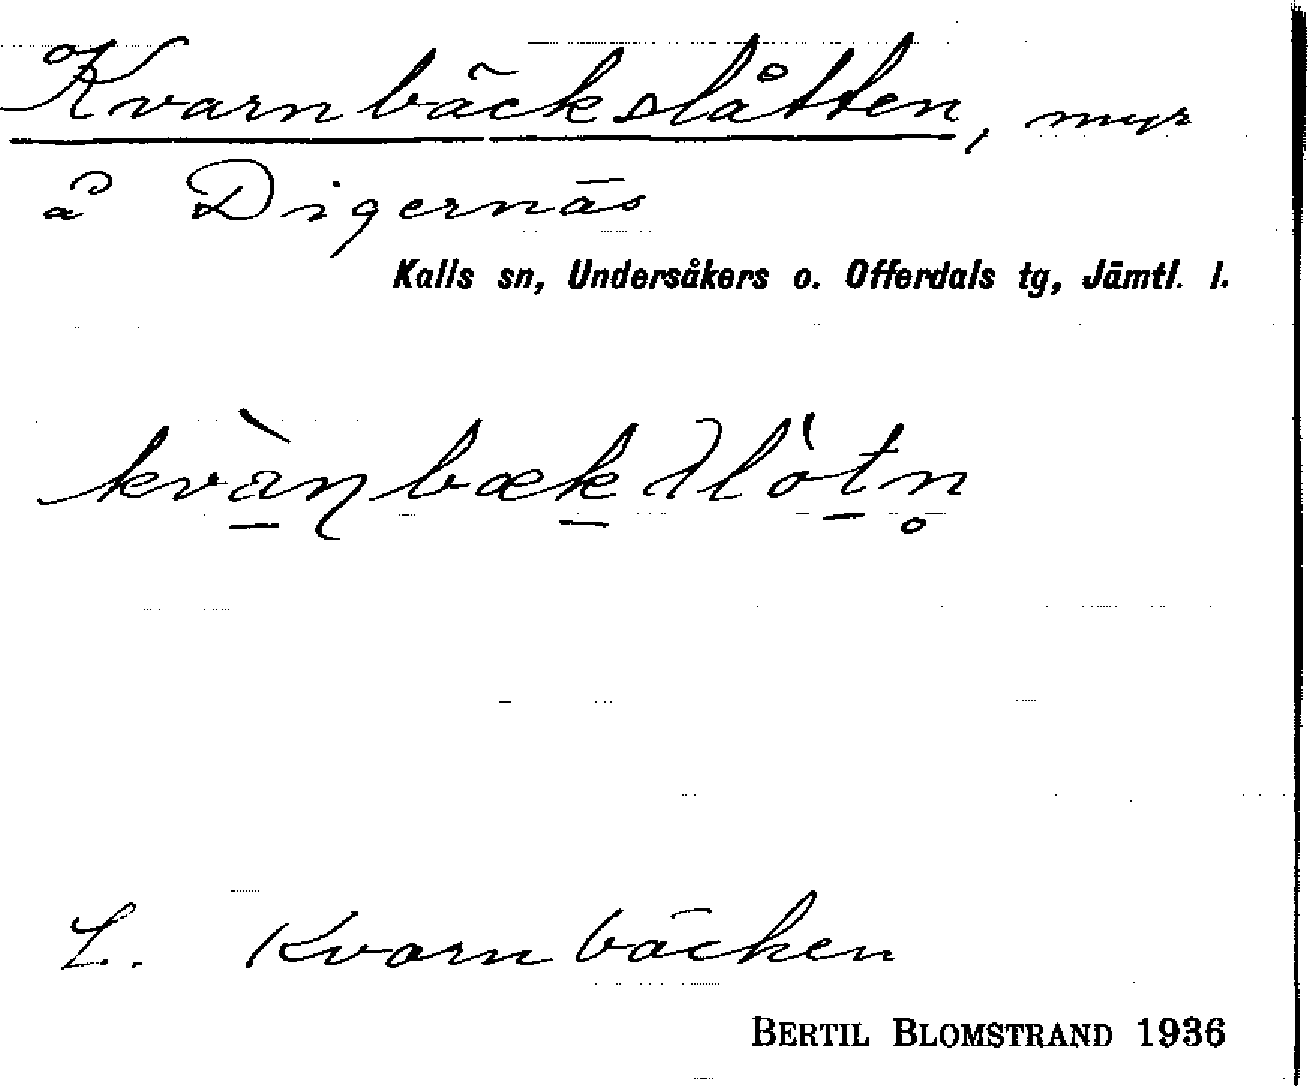 Kvarnbäckslåtten, myr
å Digernäs
Kalls sn, Undersåkers o. Offerdals tg, Jämtl. l.
L. Kvarnbäcken
BERTIL BLOMSTRAND 1936